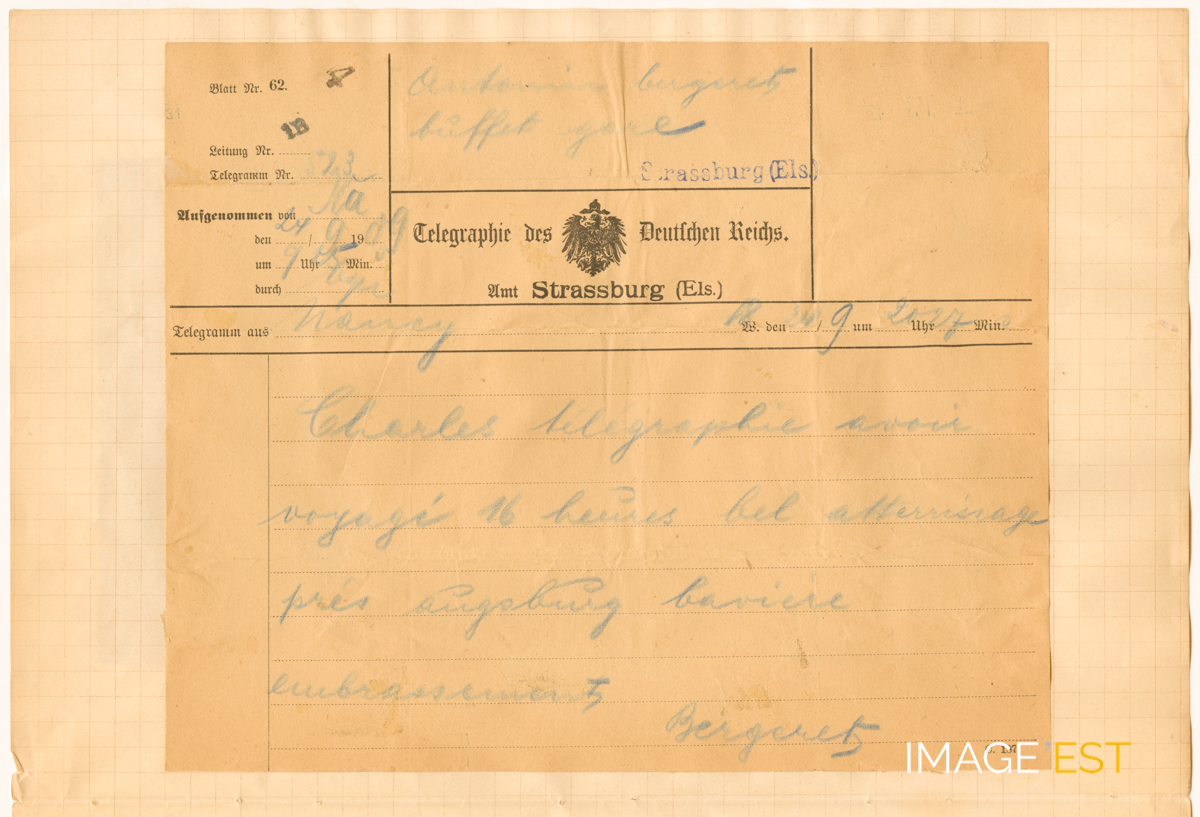 Blatt Nr. 62.
4
1B
Leitung Nr.
Telegramm Nr. 523
Aufgenommen von Na
den 24/9 1909
um 9 Uhr Min.
durch
Antonin bergeret
buffet gare
Strassburg (Els.)
Telegraphie des Deutschen Reichs.
Amt Strassburg (Els.)
Telegramm aus Nancy W. den 24/9 um Uhr Min.
Charles télégraphie avoir
voyagé 16 heures bel atterrissage
près augsburg bavière
embrassements
Bergeret
C. 187
IMAGE'EST